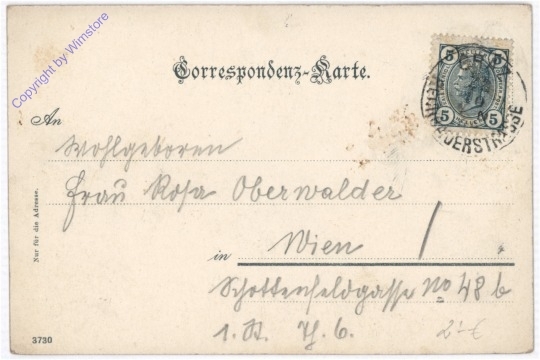 Copyright by Wimstore
Correspondenz-Karte.
5 5
5 5
GRAZ
An
Wohlgeboren
Frau Rosa Oberwalder
in Wien /
Schottenfeldgasse No 48 b
1. St. Th. 6.
Nur für die Adresse.
3730